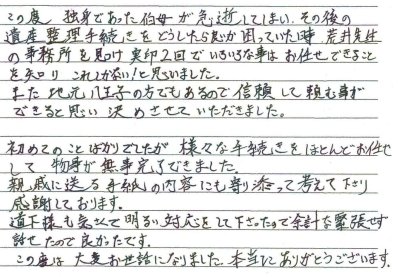 この度 独身であった伯母が急逝してしまい、その後の
遺産整理手続きをどうしたら良いか困っていた時 荒井先生
の事務所を見つけ 実印2回でいろいろな事はお任せできること
を知り これしかない！と思いました。
また地元八王子の方でもあるので信頼して頼む事が
できると思い決めさせていただきました。
初めてのことばかりでしたが 様々な手続きをほとんどお任せ
して 物事が無事完了できました。
親戚に送る手紙の内容にも寄り添って考えて下さり
感謝しております。
道下様も気さくで明るい対応をして下さったので余計な緊張せず
話せたので良かったです。
この度は大変お世話になりました。本当にありがとうございます。